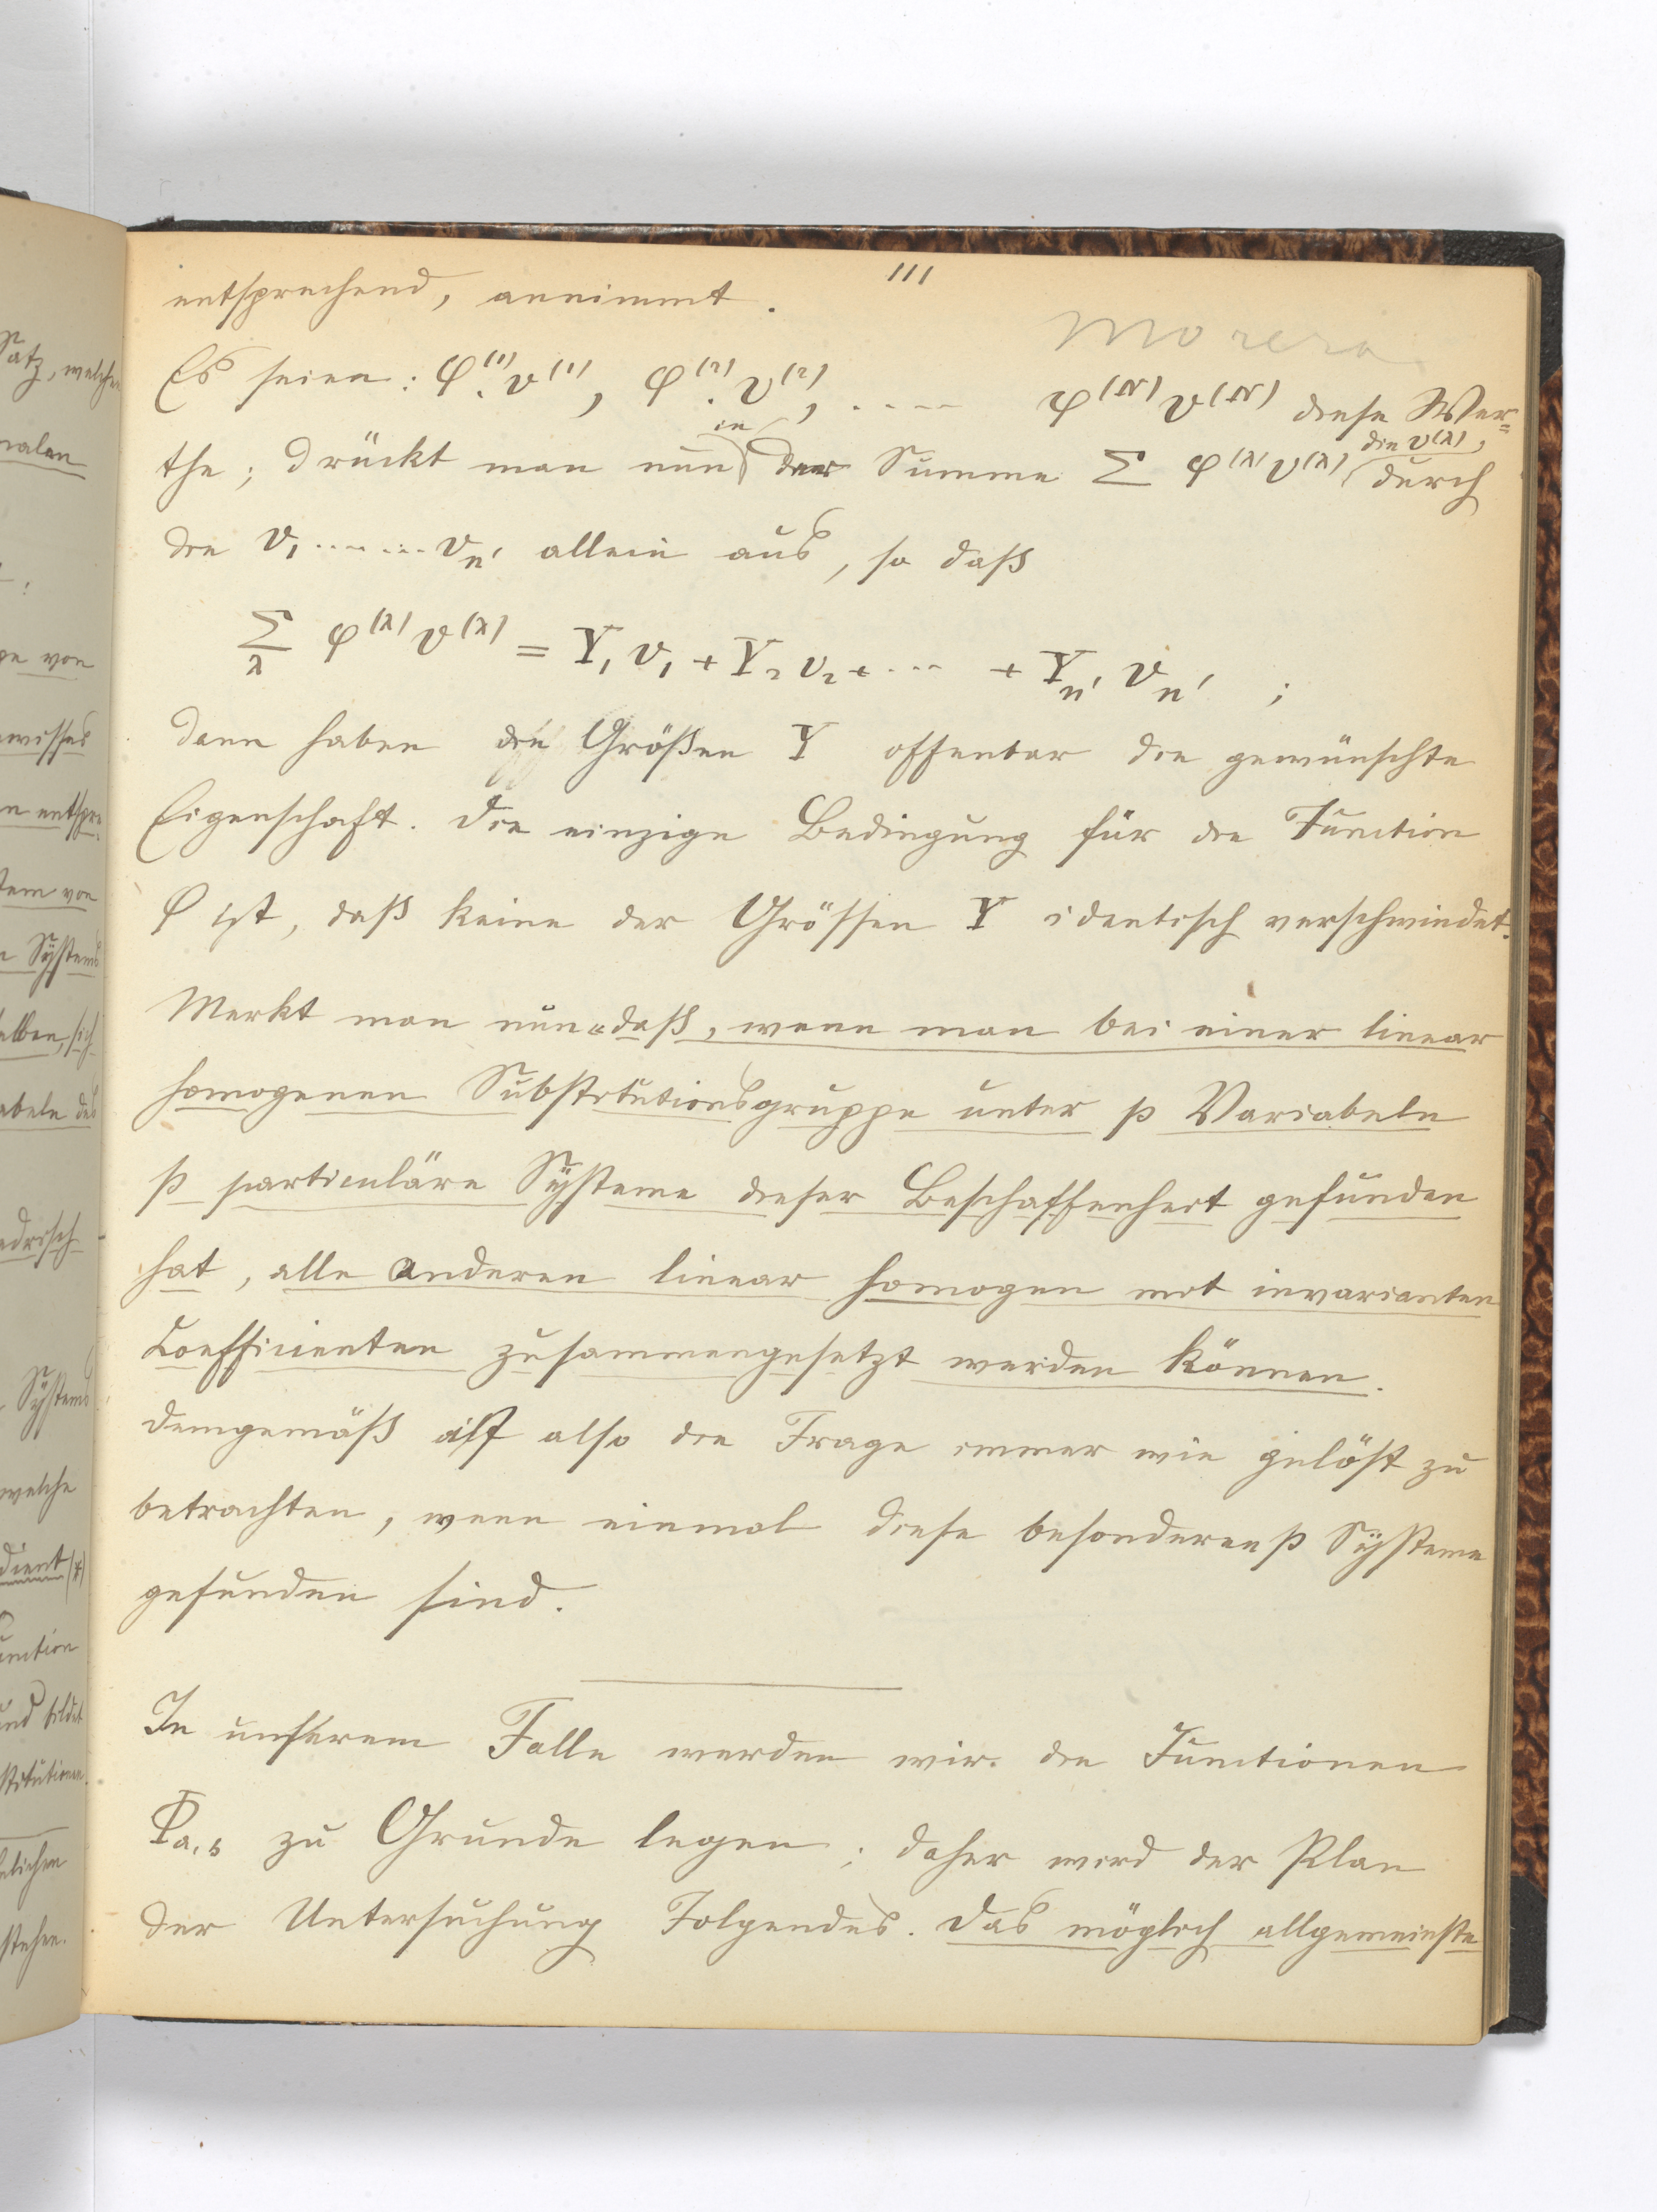 111
entsprechend, annimmt.
Morera
Es seien: φ⁽¹⁾.v⁽¹⁾, φ⁽²⁾.v⁽²⁾, ..... φ⁽ᴺ⁾v⁽ᴺ⁾ diese Wer=
in die v⁽λ⁾,
the; drückt man nun der Summe Σ φ⁽λ⁾v⁽λ⁾ durch
die v₁.......vₙ′ allein aus, so daß
Σ_λ φ⁽λ⁾v⁽λ⁾ = Y₁v₁ + Y₂v₂ + ··· + Yₙ′vₙ′ ;
dann haben die Größen Y offenbar die gewünschte
Eigenschaft. Die einzige Bedingung für die Function
φ ist, daß keine der Grössen Y identisch verschwindet.
Merkt man nun „daß, wenn man bei einer linear
homogenen Substitutionsgruppe unter p Variabeln
p particuläre Systeme dieser Beschaffenheit gefunden
hat, alle anderen linear homogen mit invarianten
Coefficienten zusammengesetzt werden können.
Demgemäß ist also die Frage immer wie gelöst zu
betrachten, wenn einmal diese besonderen p Systeme
gefunden sind.
In unserem Falle werden wir die Functionen
Φa,s zu Grunde legen; daher wird der Plan
der Untersuchung Folgendes. Das möglich allgemeinste